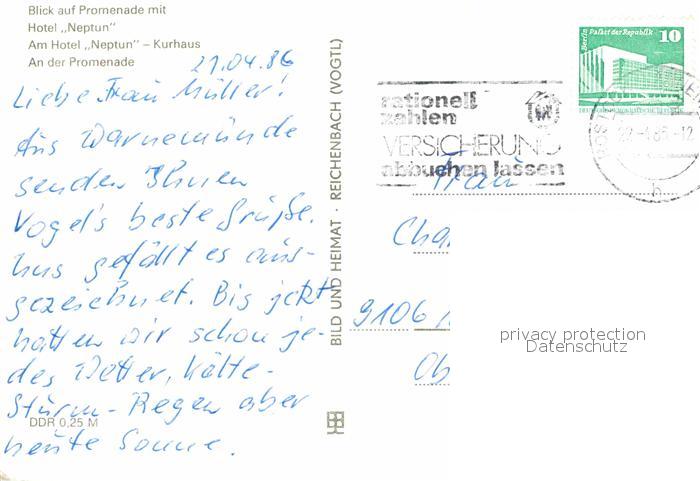 Blick auf Promenade mit
Hotel „Neptun"
Am Hotel „Neptun" – Kurhaus
An der Promenade
21.04.86
Liebe Frau Müller!
Aus Warnemünde
senden Ihnen
Vogel's beste Grüße.
Uns gefällt es aus-
gezeichnet. Bis jetzt
hatten wir schon je-
des Wetter, Kälte-
Sturm-Regen aber
heute Sonne.
DDR 0,25 M
BILD UND HEIMAT · REICHENBACH (VOGTL)
Berlin Palast der Republik 10
rationell
zahlen
VERSICHERUNG
abbuchen lassen
Frau
Cha
9106
Ob
privacy protection
Datenschutz